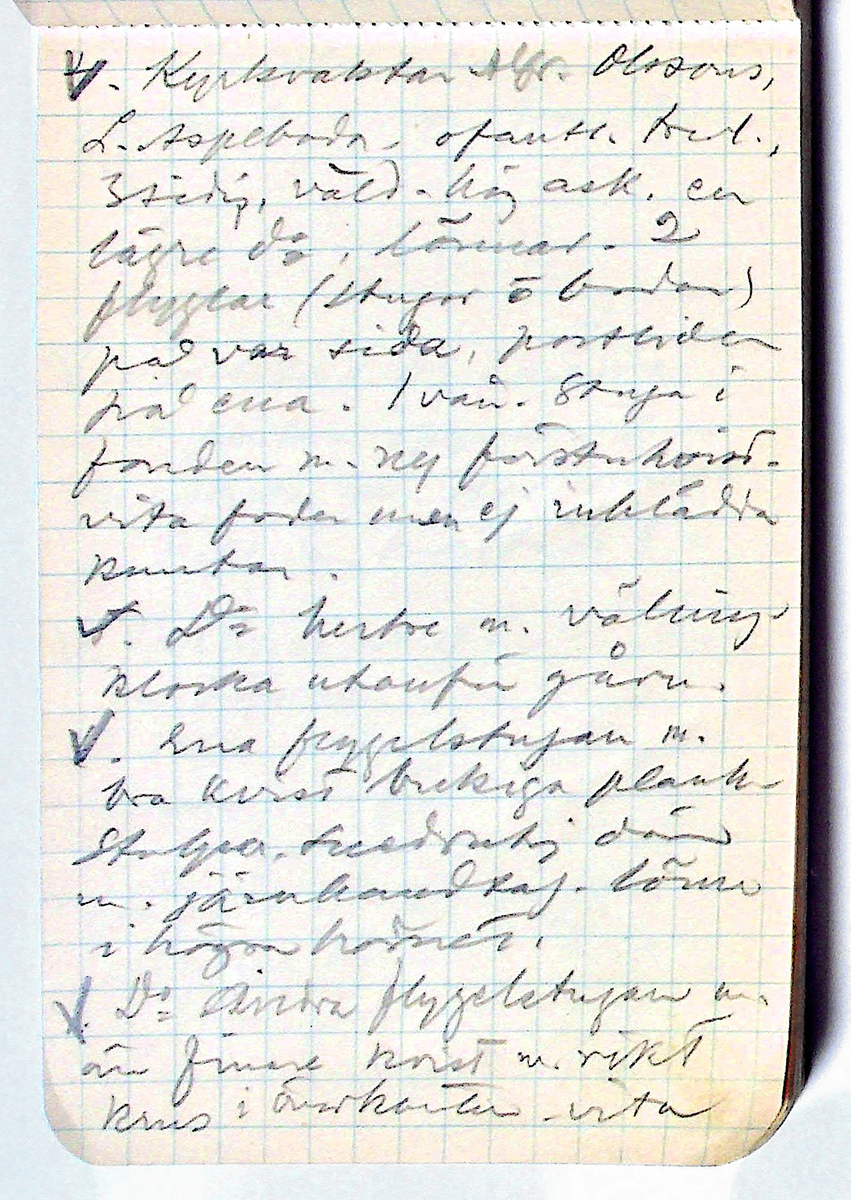 4. Kyrkvaktar Alfr. Olssons,
L. Aspeboda. ofantl. tred.,
3sidig, väld. hög ask. en
lägre do, lönnar. 2
flyglar (stugor o bodar)
på var sida, portlider
på ena. 1 vån. stuga i
fonden m. ny förstukvist.
vita foder men ej inklädda
knutar.
5. Do herbre m. vällings
klocka utanför gården.
6. Ena flygelstugan m.
bra kvist bukiga plank
stolpar. snedrutig dörr
m. järnhandtag. lönn
i högra hörnet.
7. Do Andra flygelstugan m.
än finare kvist m. rikt
krus i överkanten vita